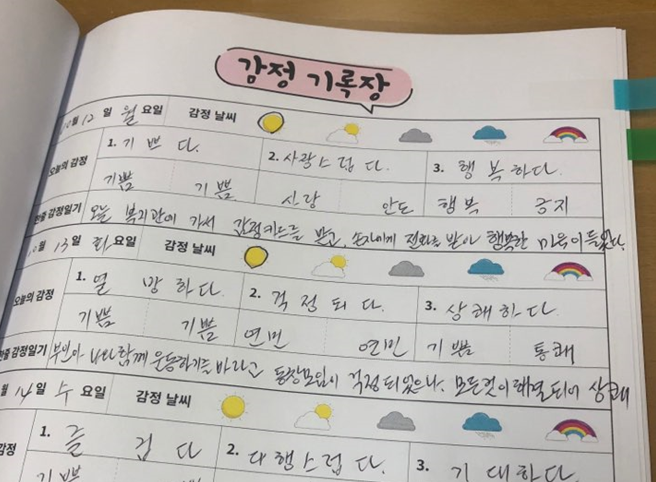 감정 기록장
10월 12일 월요일 감정 날씨
오늘의 감정 1. 기쁘다. 2. 사랑스럽다. 3. 행복하다.
기쁨 기쁨 사랑 안도 행복 긍지
한줄 감정일기 오늘 복지관에 가서 감정키트를 받고, 손자에게 전화를 받아 행복한 마음이 들었다.
월 13일 화요일 감정 날씨
오늘의 감정 1. 열망하다. 2. 걱정되다. 3. 상쾌하다.
기쁨 기쁨 연민 연민 기쁨 통쾌
한줄 감정일기 부인이 나와 함께 운동하기를 바라고 동창모임이 걱정되었으나. 모든것이 해결되어 상쾌
월 14일 수요일 감정 날씨
감정 1. 즐겁다 2. 다행스럽다. 3. 기대하다.
기쁨